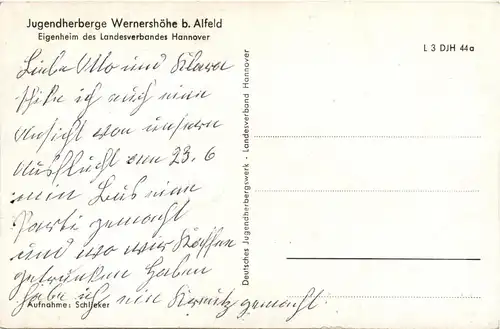 Jugendherberge Wernershöhe b. Alfeld
Eigenheim des Landesverbandes Hannover
L 3 DJH 44a
Liebe Otto und Klara
schike ich euch eine
Ansicht von unsern
Ausflucht am 23.6
mein Bus eine
Parti gemacht
und wo wir Kaffee
getrunken haben
habe ich ein Kreutz gemacht.
Aufnahme: Schlieker
Deutsches Jugendherbergswerk - Landesverband Hannover